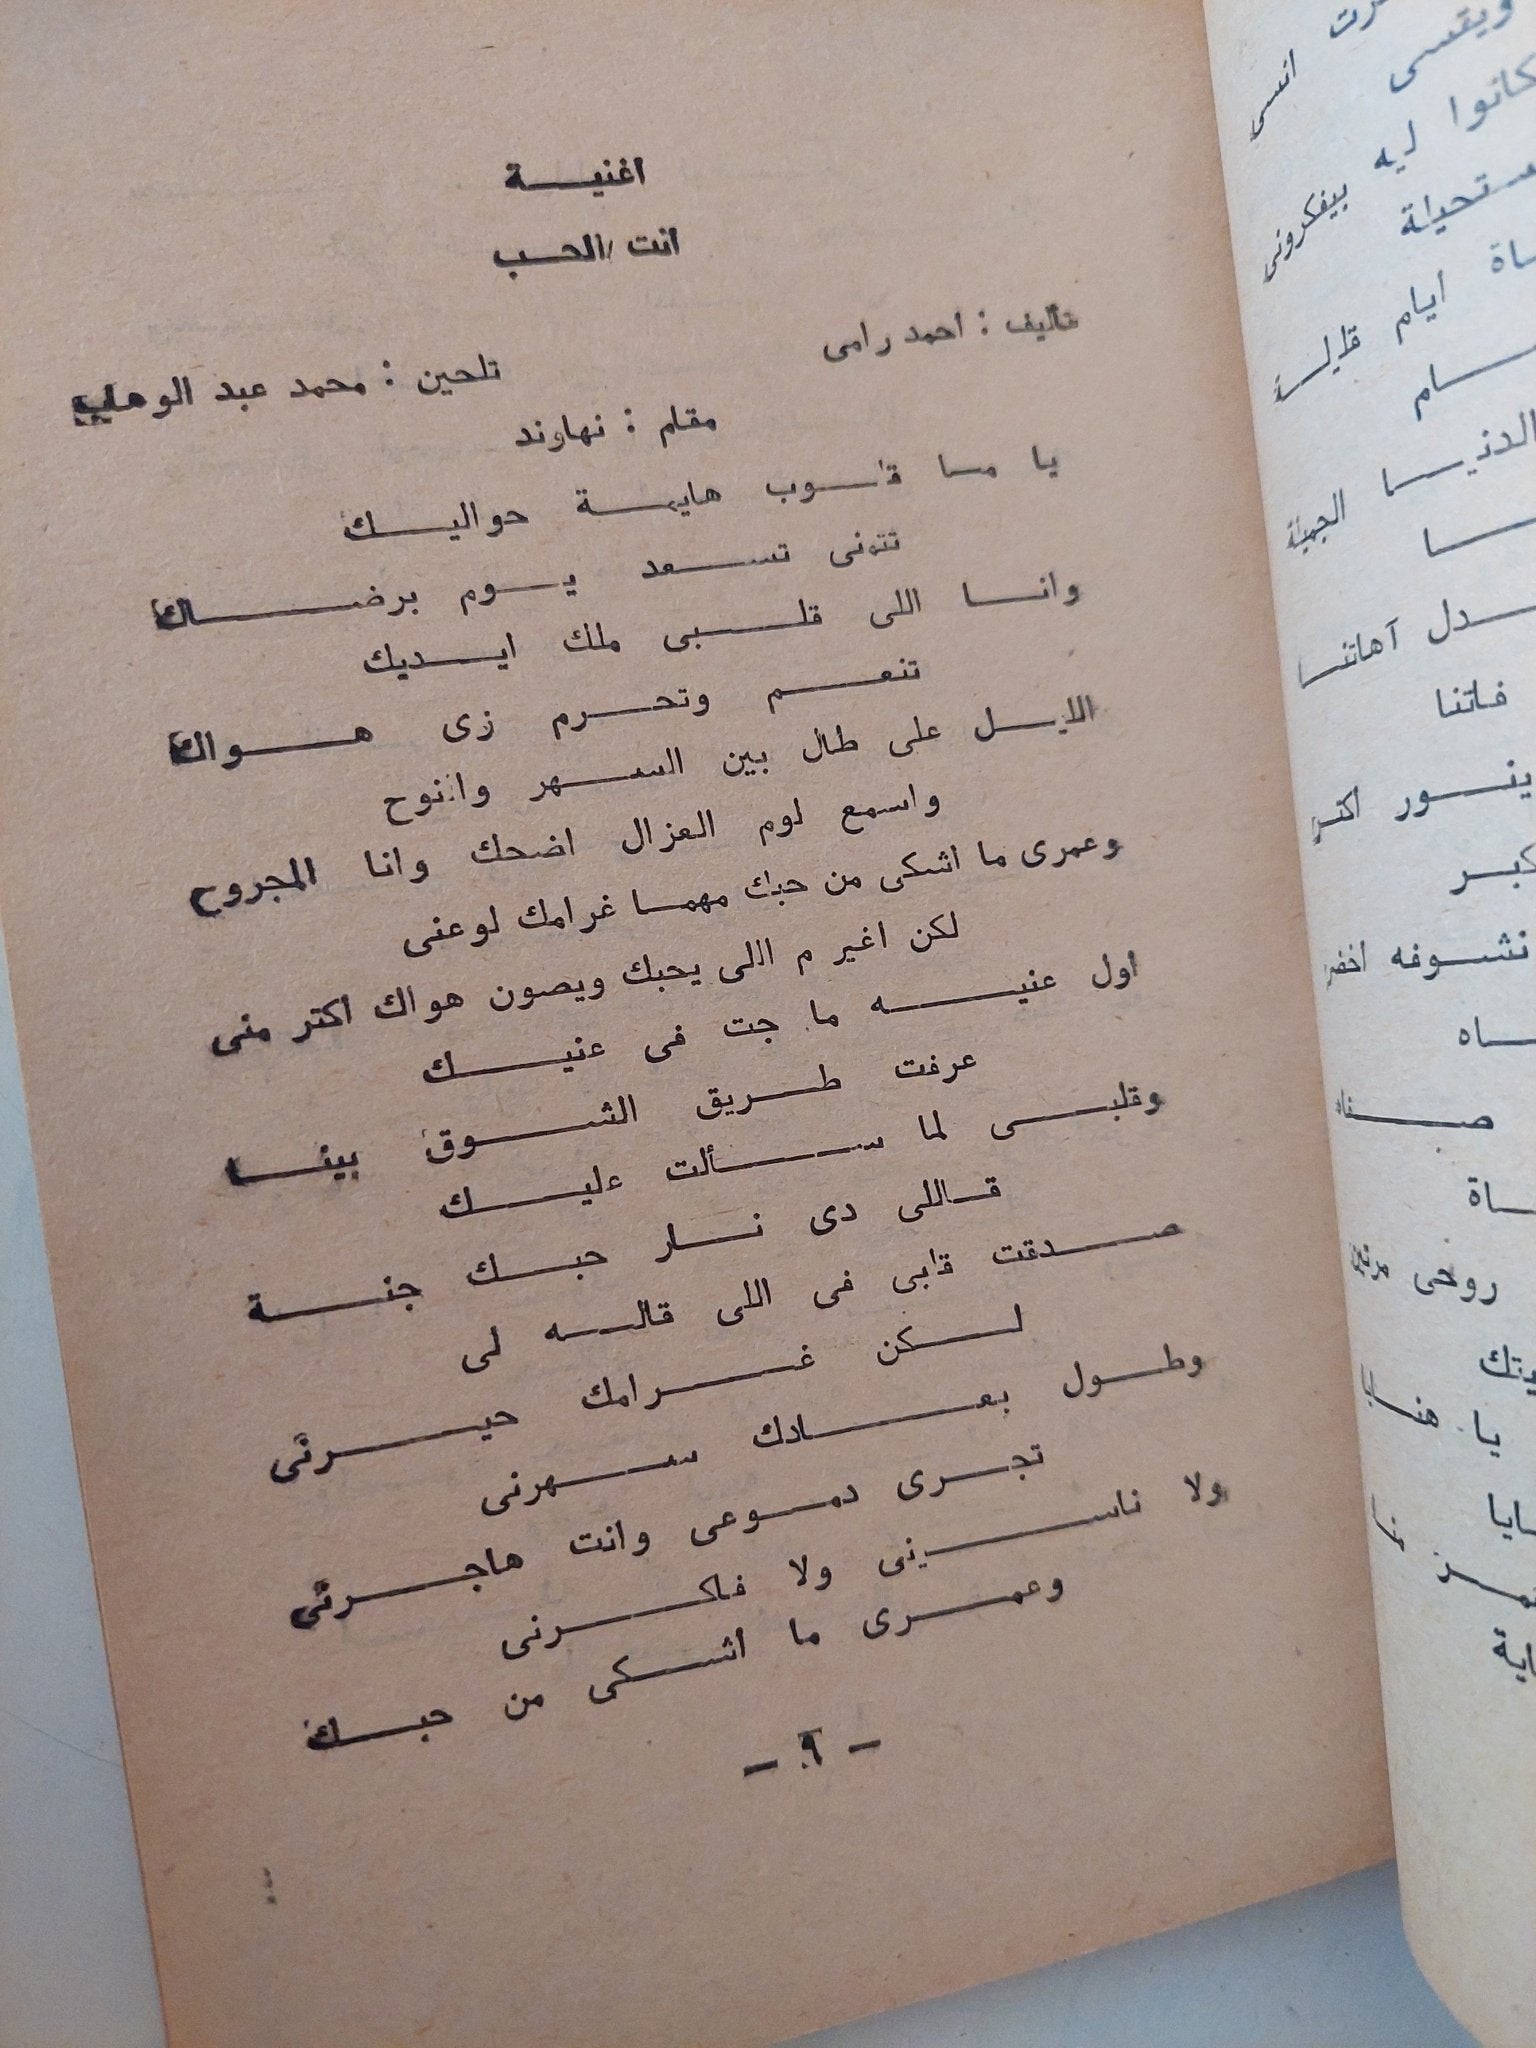 اغنية
انت الحب
تأليف : احمد رامى
تلحين : محمد عبد الوهاب
مقام : نهاوند
يا ما قلوب هايمة حواليك
تتمنى تسعد يوم برضاك
وانا اللى قلبى ملك ايديك
تنعم وتحرم زى هواك
الليل على طال بين السهر والنوح
واسمع لوم العزال اضحك وانا المجروح
وعمرى ما اشكى من حبك مهما غرامك لوعنى
لكن اغير م اللى يحبك ويصون هواك اكتر منى
اول عنيه ما جت فى عنيك
عرفت طريق الشوق بينا
وقلبى لما سألت عليك
قاللى دى نار حبك جنة
صدقت قلبى فى اللى قاله لى
لكن غرامك حيرنى
وطول بعادك سهرنى
تجرى دموعى وانت هاجرنى
ولا ناسينى ولا فاكرنى
وعمرى ما اشكى من حبك
- ٩ -
انسى
ويقسى
كانوا ليه بيفكرونى
ايام قليلة
الدنيا الجميلة
آهاتنا
فاتنا
ينور اكتر
نشوفه اخضر
روحى مرتين
يا هنايا